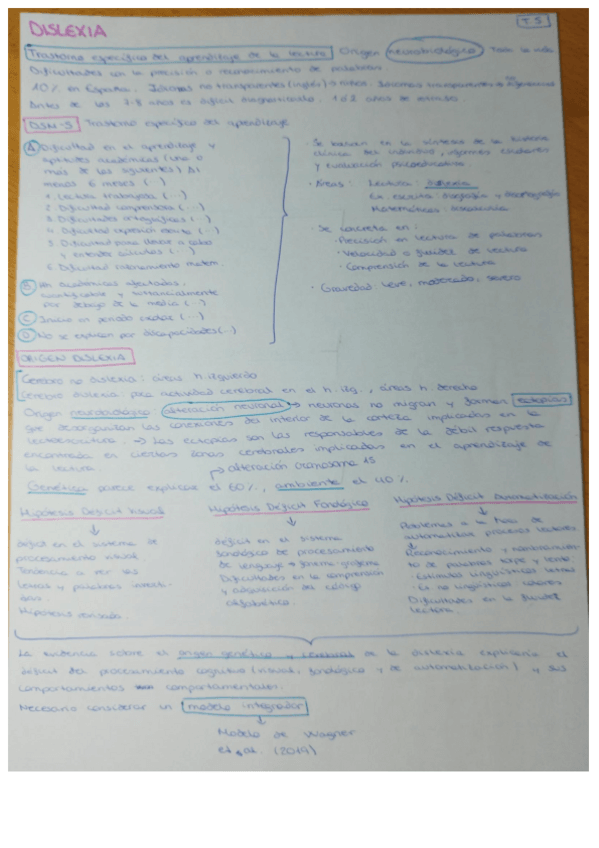 DISLEXIA
T.5
Trastorno específico del aprendizaje de la lectura. Origen neurobiológico. Toda la vida.
Dificultades en la precisión o reconocimiento de palabras.
10% en España. Idiomas no transparentes (inglés) → niños. Idiomas transparentes →
Antes de los 7-8 años es difícil diagnosticarlo. 1 o 2 años de retraso.
DSM-5 Trastorno específico del aprendizaje
A Dificultad en el aprendizaje y
aptitudes académicas (una o
más de las siguientes) Al
menos 6 meses (...)
1. Lectura trabajosa (...)
2. Dificultad comprensora (...)
3. Dificultades ortográficas (...)
4. Dificultad expresión escrita (...)
5. Dificultad para llevar a cabo
y entender cálculos (...)
6. Dificultad razonamiento matem.
B académicas afectadas,
cuantificables y sustancialmente
por debajo de la media (...)
C Inicio en periodo escolar (...)
D No se explican por discapacidades (...)
· Se basan en la síntesis de la historia
clínica del individuo, informes escolares
y evaluación psicoeducativa.
· Áreas: Lectura: dislexia
Ex. escrita: disgrafía y disortografía
Matemáticas: discalculia
· Se concreta en:
· Precisión en lectura de palabras
· Velocidad o fluidez de lectura
· Comprensión de la lectura
· Gravedad: leve, moderado, severo
ORIGEN DISLEXIA
Cerebro no dislexia: áreas h. izquierdo
Cerebro dislexia: poca actividad cerebral en el h. izq., áreas h. derecho
Origen neurobiológico (alteración neuronal) → neuronas no migran y forman ectopias
que desorganizan las conexiones del interior de la corteza implicadas en la
lectoescritura. → Las ectopias son las responsables de la débil respuesta
encontrada en ciertas zonas cerebrales implicadas en el aprendizaje de
la lectura
→ alteración cromosoma 15
Genética parece explicar el 60%, ambiente el 40%.
Hipótesis Déficit Visual
déficit en el sistema de
procesamiento visual.
Tendencia a ver las
letras y palabras inverti-
das.
Hipótesis revisada
Hipótesis Déficit Fonológico
déficit en el sistema
fonológico de procesamiento
de lenguaje → fonema-grafema
Dificultades en la comprensión
y adquisición del código
alfabético.
Hipótesis Déficit Automatización
Problemas a la hora de
automatizar procesos lectores
Reconocimiento y nombramien-
to de palabras torpe y lento
· Estímulos lingüísticos letras
· Es no lingüísticos colores
Dificultades en la fluidez
lectora.
La evidencia sobre el origen genético y cerebral de la dislexia explicaría el
déficit del procesamiento cognitivo (visual, fonológico y de automatización) y sus
comportamientos comportamentales.
Necesario considerar un modelo integrador
Modelo de Wagner
et. al. (2019)